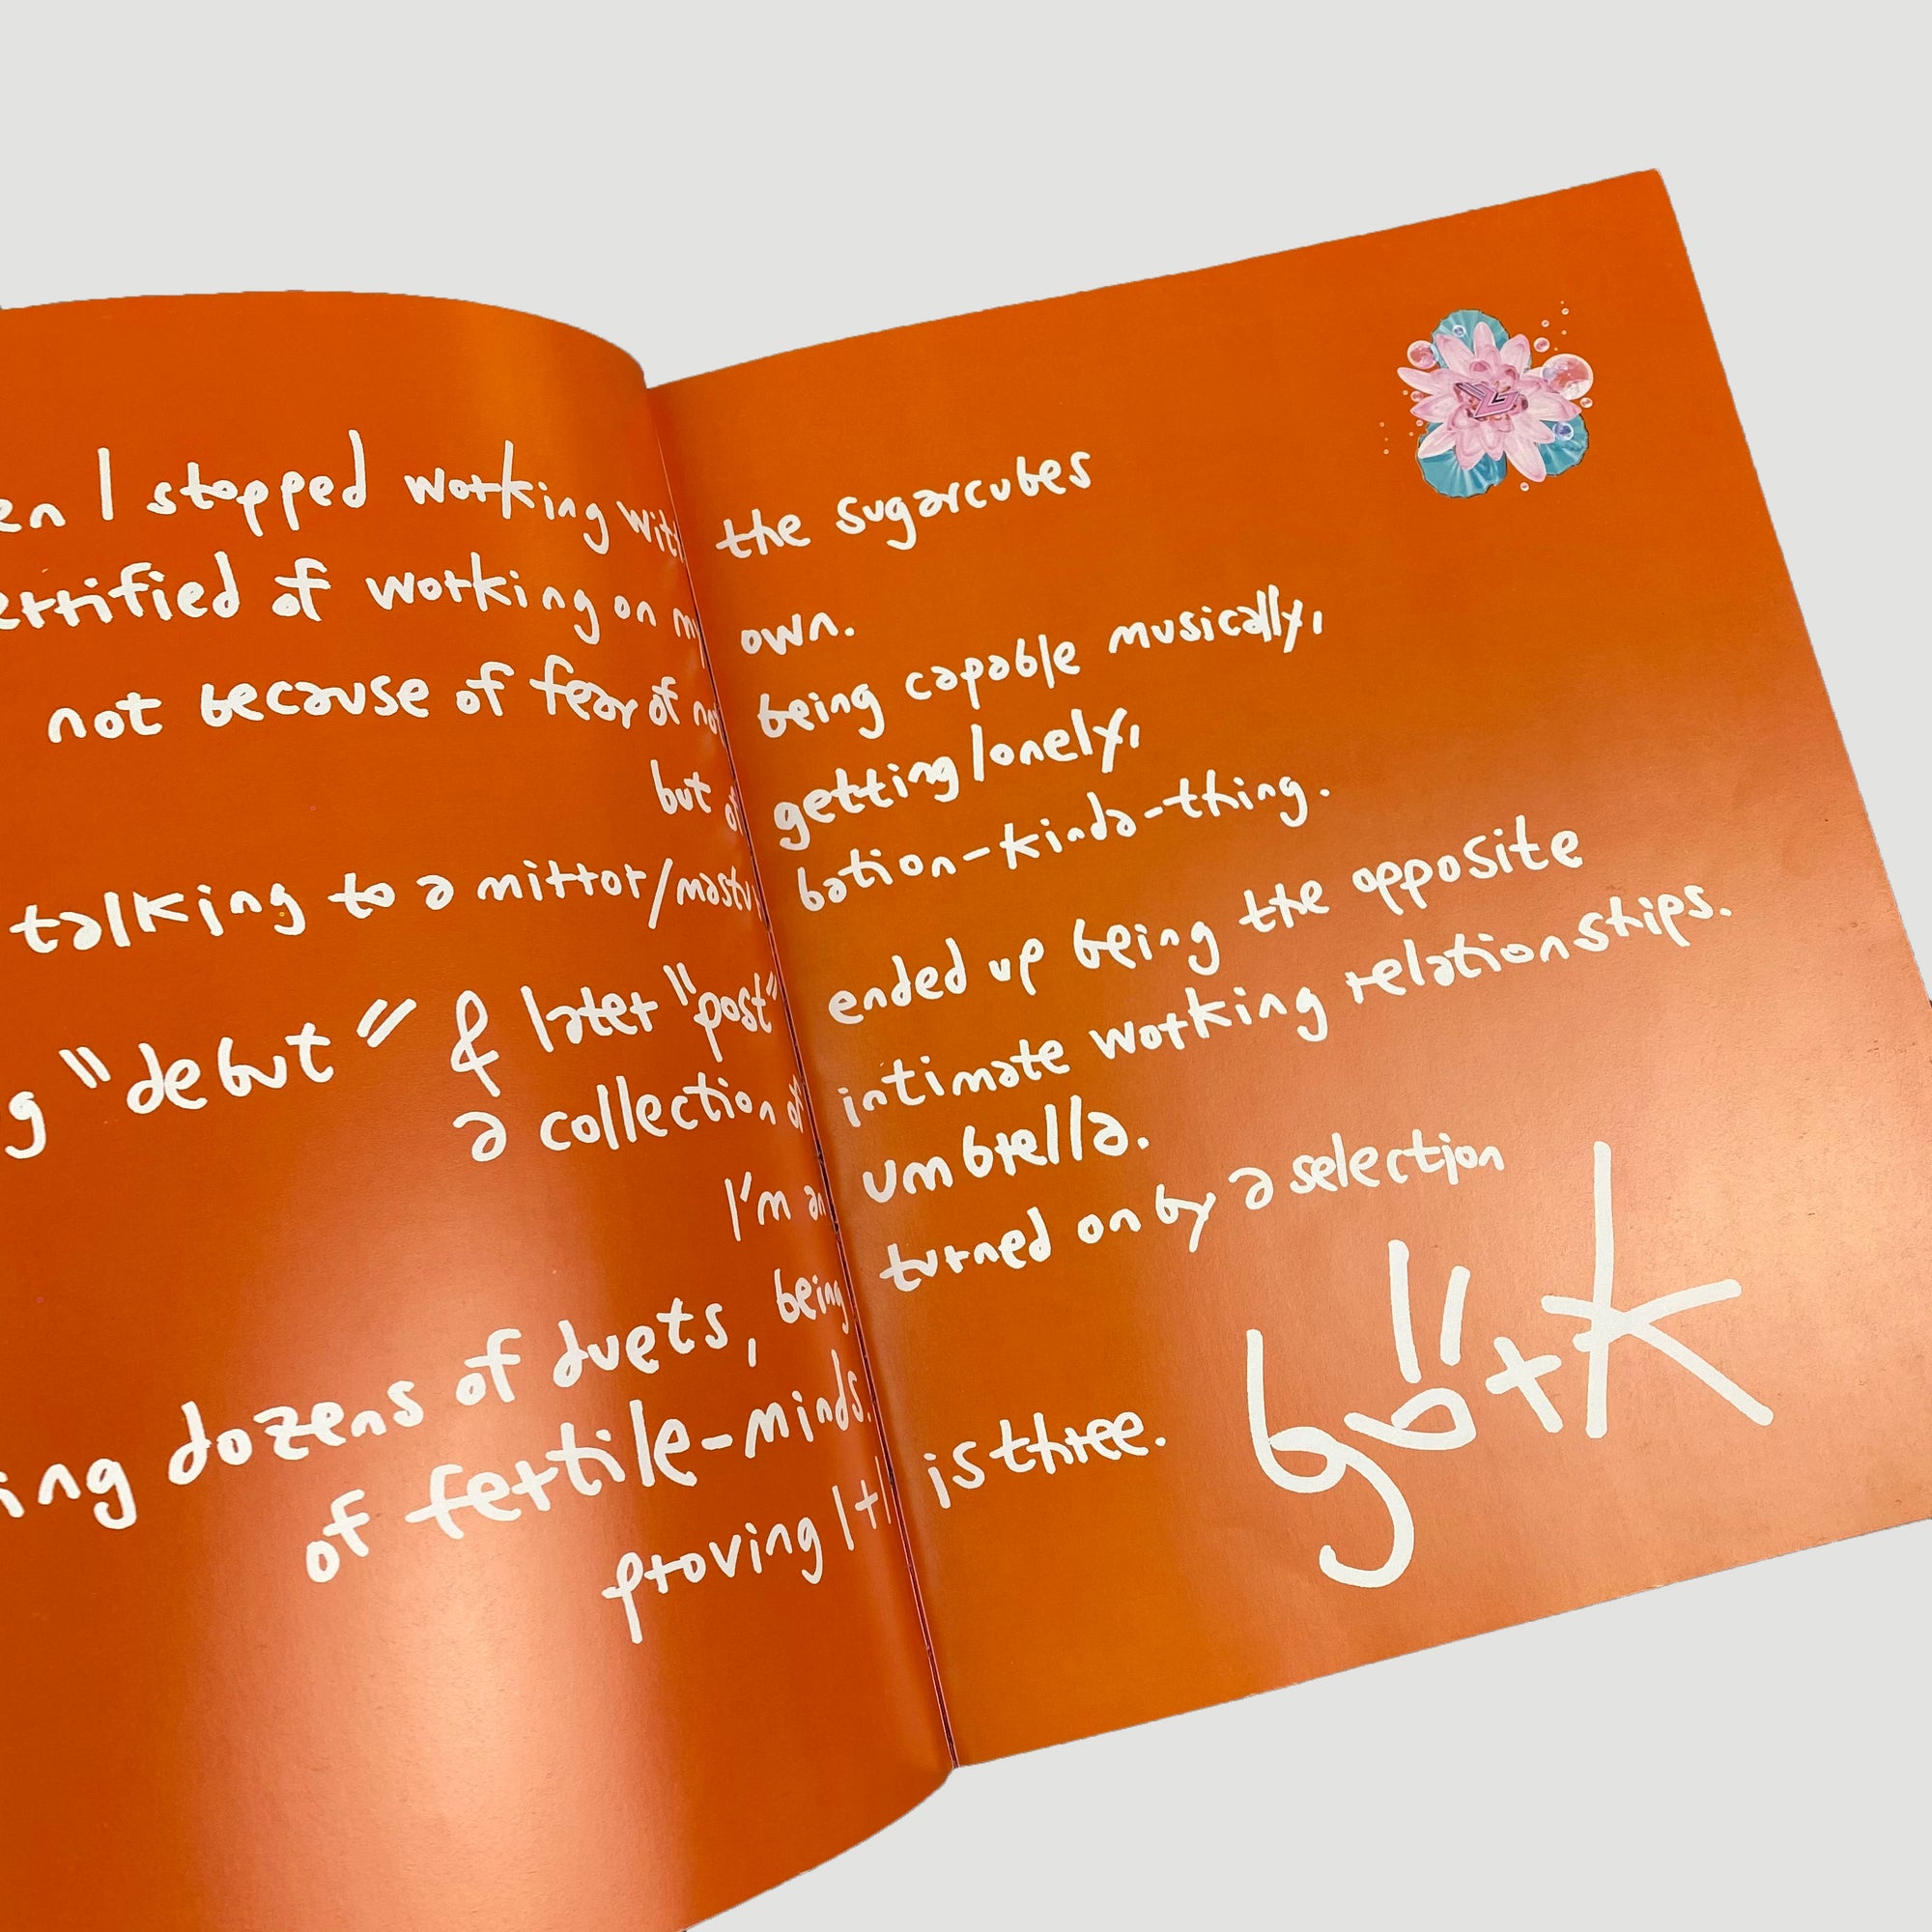 en I stopped working with the sugarcubes
errified of working on my own.
not because of fear of not being capable musically,
but of getting lonely,
talking to a mirror/masturbation-kinda-thing.
g "debut" & later "post" ended up being the opposite
a collection of intimate working relationships.
I'm an umbrella.
ing dozens of duets, being turned on by a selection
of fertile-minds.
proving 1+1 is three.
björk